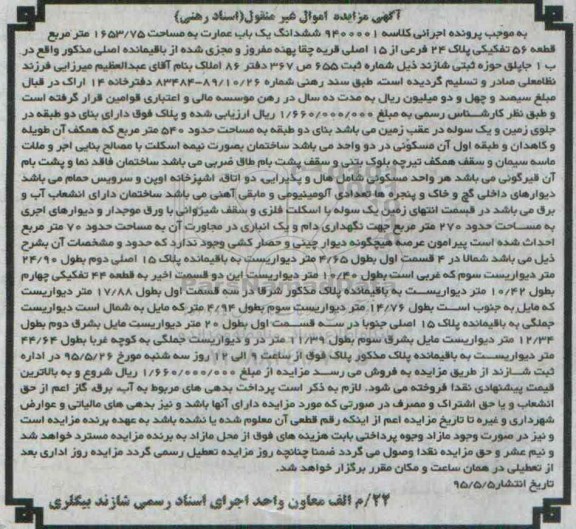 آگهی مزایده اموال غیر منقول(اسناد رهنی)
به موجب پرونده اجرائی کلاسه ۹۴۰۰۰۰۱ ششدانگ یک باب عمارت به مساحت ۱۶۵۳/۷۵ متر مربع
قطعه ۵۶ تفکیکی پلاک ۲۴ فرعی از ۱۵ اصلی قریه چقا پهنه مفروز و مجزی شده از باقیمانده اصلی مذکور واقع در
ب ۱ جاپلق حوزه ثبتی شازند ذیل شماره ثبت ۶۵۵ ص ۳۶۷ دفتر ۸۶ املاک بنام آقای عبدالعظیم میرزایی فرزند
نظامعلی صادر و تسلیم گردیده است. طبق سند رهنی شماره ۸۹/۱۰/۲۶-۸۳۴۸۴ دفترخانه ۱۴ اراک در قبال
مبلغ سیصد و چهل و دو میلیون ریال به مدت ده سال در رهن موسسه مالی و اعتباری قوامین قرار گرفته است
و طبق نظر کارشناس رسمی به مبلغ ۱/۶۶۰/۰۰۰/۰۰۰ ریال ارزیابی شده و پلاک فوق دارای بنای دو طبقه در
جلوی زمین و یک سوله در عقب زمین می باشد بنای دو طبقه به مساحت حدود ۵۴۰ متر مربع که همکف آن طویله
و کاهدان و طبقه اول آن مسکونی در دو واحد می باشد ساختمان بصورت نیمه اسکلت با مصالح بنایی آجر و ملات
ماسه سیمان و سقف همکف تیرچه بلوک بتنی و سقف پشت بام طاق ضربی می باشد ساختمان فاقد نما و پشت بام
آن قیرگونی می باشد هر واحد مسکونی شامل هال و پذیرایی، دو اتاق، آشپزخانه اوپن و سرویس حمام می باشد
دیوارهای داخلی گچ و خاک و پنجره ها تعدادی آلومینیومی و مابقی آهنی می باشد ساختمان دارای انشعاب آب و
برق می باشد در قسمت انتهای زمین یک سوله با اسکلت فلزی و سقف شیروانی با ورق موجدار و دیوارهای آجری
به مساحت حدود ۲۷۰ متر مربع جهت نگهداری دام و یک انباری در مجاورت آن به مساحت حدود ۷۰ متر مربع
احداث شده است پیرامون عرصه هیچگونه دیوار چینی و حصار کشی وجود ندارد که حدود و مشخصات آن بشرح
ذیل می باشد شمالا در ۴ قسمت اول بطول ۴/۶۵ متر دیواریست به باقیمانده پلاک ۱۵ اصلی دوم بطول ۲۴/۹۰
متر دیواریست سوم که غربی است بطول ۱۰/۴۰ متر دیواریست این دو قسمت اخیر به قطعه ۴۴ تفکیکی چهارم
بطول ۱۰/۴۲ متر دیواریست به باقیمانده پلاک مذکور شرقا در سه قسمت اول بطول ۱۷/۸۸ متر دیواریست
که مایل به جنوب است بطول ۱۴/۷۶ متر دیواریست سوم بطول ۹/۴ متر که مایل به شمال است دیواریست
جملگی به باقیمانده پلاک ۱۵ اصلی جنوبا در سه قسمت اول بطول ۲۰ متر دیواریست مایل بشرق دوم بطول
۱۲/۳۴ متر دیواریست مایل بشرق سوم بطول ۱۱/۳۹ متر در و دیواریست جملگی به کوچه غربا بطول ۴۴/۶۴
متر دیواریست به باقیمانده پلاک مذکور پلاک فوق از ساعت ۹ الی ۱۲ روز سه شنبه مورخ ۹۵/۵/۲۶ در اداره
ثبت شازند از طریق مزایده به فروش می رسد مزایده از مبلغ ۱/۶۶۰/۰۰۰/۰۰۰ ریال شروع و به بالاترین
قیمت پیشنهادی نقدا فروخته می شود. لازم به ذکر است پرداخت بدهی های مربوط به آب، برق، گاز اعم از حق
انشعاب و یا حق اشتراک و مصرف در صورتی که مورد مزایده دارای آنها باشد و نیز بدهی های مالیاتی و عوارض
شهرداری و غیره تا تاریخ مزایده اعم از اینکه رقم قطعی آن معلوم شده یا نشده باشد به عهده برنده مزایده است
و نیز در صورت وجود مازاد وجوه پرداختی بابت هزینه های فوق از محل مازاد به برنده مزایده مسترد خواهد شد
و نیم عشر و حق مزایده نقدا وصول می گردد ضمنا چنانچه روز مزایده تعطیل رسمی گردد مزایده روز اداری بعد
از تعطیلی در همان ساعت و مکان مقرر برگزار خواهد شد.
تاریخ انتشار ۹۵/۵/۵
۲۲/م الف معاون واحد اجرای اسناد رسمی شازند بیگلری